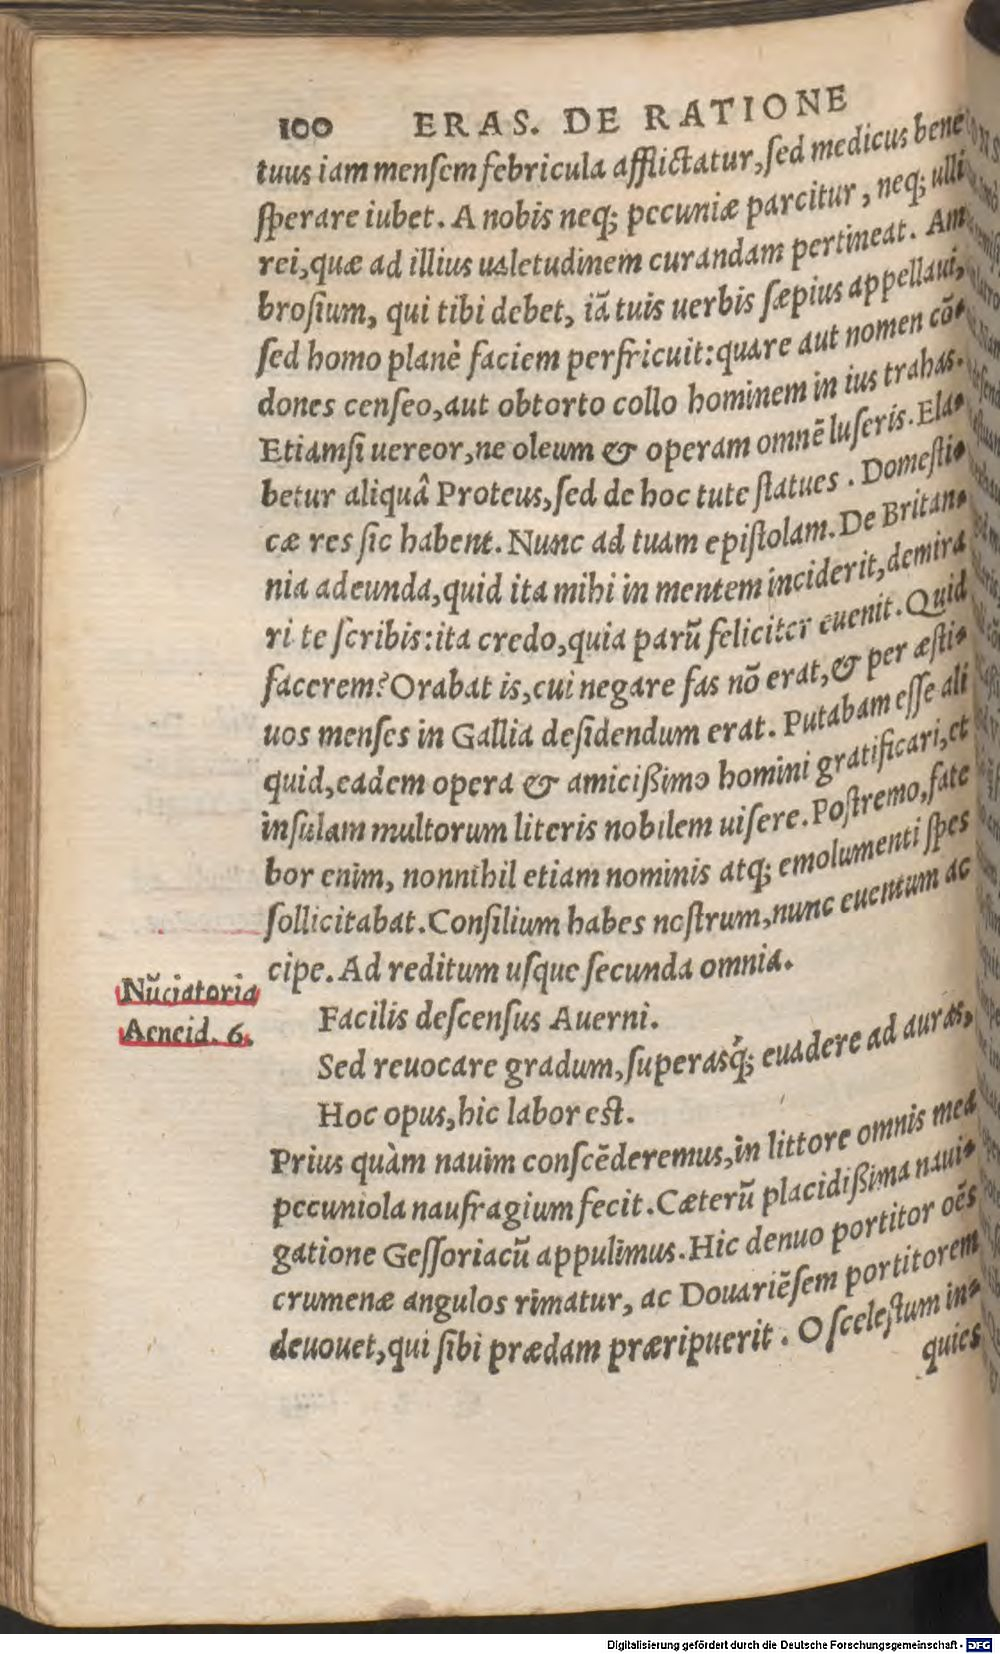 100 ERAS. DE RATIONE
tuus iam menſem febricula afflictatur, ſed medicus bene
ſperare iubet. A nobis neq; pecuniæ parcitur, neq; ulli
rei, quæ ad illius ualetudinem curandam pertineat. Am
broſium, qui tibi debet, iā tuis uerbis ſæpius appellaui,
ſed homo planè faciem perfricuit: quare aut nomen cō-
dones cenſeo, aut obtorto collo hominem in ius trahas.
Etiamſi uereor, ne oleum & operam omnē luſeris. Ela-
betur aliquâ Proteus, ſed de hoc tute ſtatues. Domeſti-
cæ res ſic habent. Nunc ad tuam epiſtolam. De Britan-
nia adeunda, quid ita mihi in mentem inciderit, demira
ri te ſcribis: ita credo, quia parū feliciter euenit. Quid
facerem? Orabat is, cui negare fas nō erat, & per æſti-
uos menſes in Gallia deſidendum erat. Putabam eſſe ali
quid, eadem opera & amicißimo homini gratificari, et
inſulam multorum literis nobilem uiſere. Poſtremo, fate
bor enim, nonnihil etiam nominis atq; emolumenti ſpes
ſollicitabat. Conſilium habes noſtrum, nunc euentum ac
cipe. Ad reditum uſque ſecunda omnia.
Nūciatoria
Aeneid. 6.
Facilis deſcenſus Auerni.
Sed reuocare gradum, ſuperasq́; euadere ad auras,
Hoc opus, hic labor eſt.
Prius quàm nauim conſcēderemus, in littore omnis mea
pecuniola naufragium fecit. Cæterū placidißima naui-
gatione Geſſoriacū appulimus. Hic denuo portitor oēs
crumenæ angulos rimatur, ac Douariēſem portitorem
deuouet, qui ſibi prædam præripuerit. O ſceleſtum in-
quies
Digitalisierung gefördert durch die Deutsche Forschungsgemeinschaft - DFG